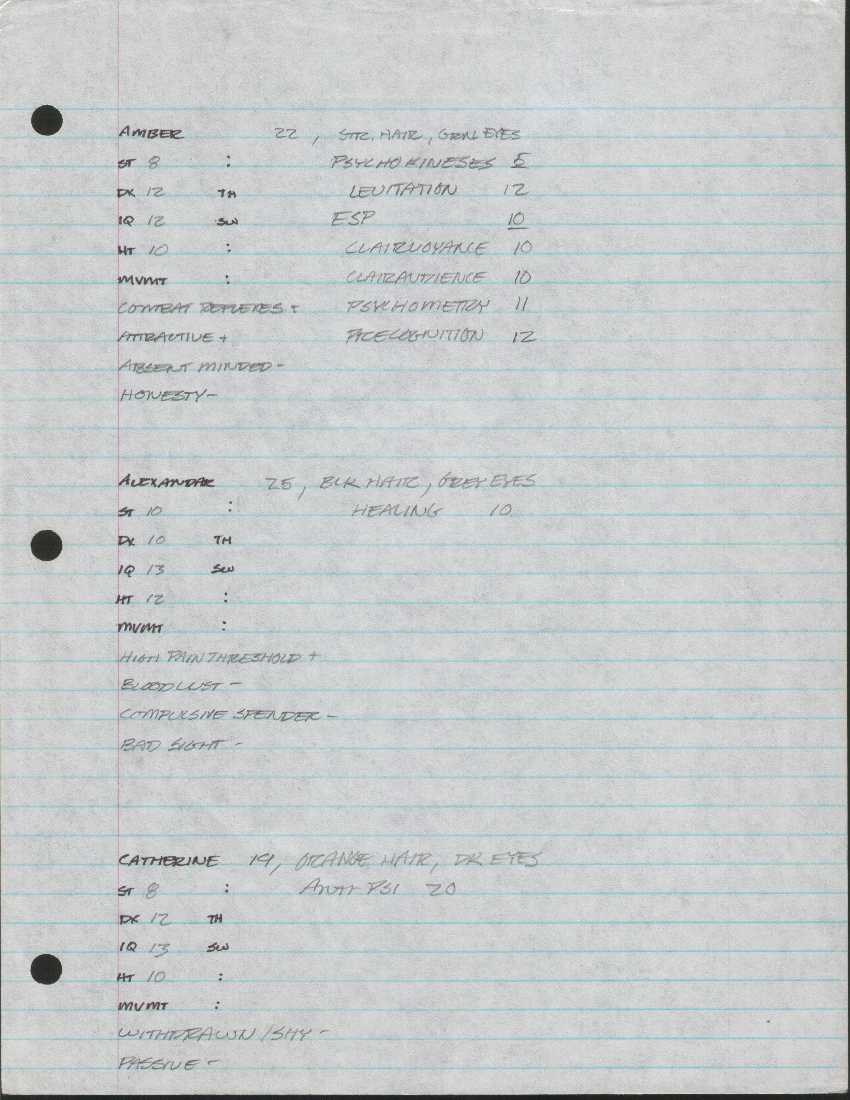 AMBER 22, STR. HAIR, GRN EYES
ST 8 : PSYCHOKINESES 5
DX 12 TH LEVITATION 12
IQ 12 SW ESP 10
HT 10 : CLAIRVOYANCE 10
MVMT : CLAIRAUDIENCE 10
COMBAT REFLEXES + PSYCHOMETRY 11
ATTRACTIVE + PRECOGNITION 12
ABSENT MINDED -
HONESTY -
ALEXANDAR 25, BLK HAIR, GREY EYES
ST 10 : HEALING 10
DX 10 TH
IQ 13 SW
HT 12 :
MVMT :
HIGH PAIN THRESHOLD +
BLOODLUST -
COMPULSIVE SPENDER -
BAD SIGHT -
CATHERINE 19, ORANGE HAIR, DK EYES
ST 8 : ANTI PSI 20
DX 12 TH
IQ 13 SW
HT 10 :
MVMT :
WITHDRAWN / SHY -
PASSIVE -